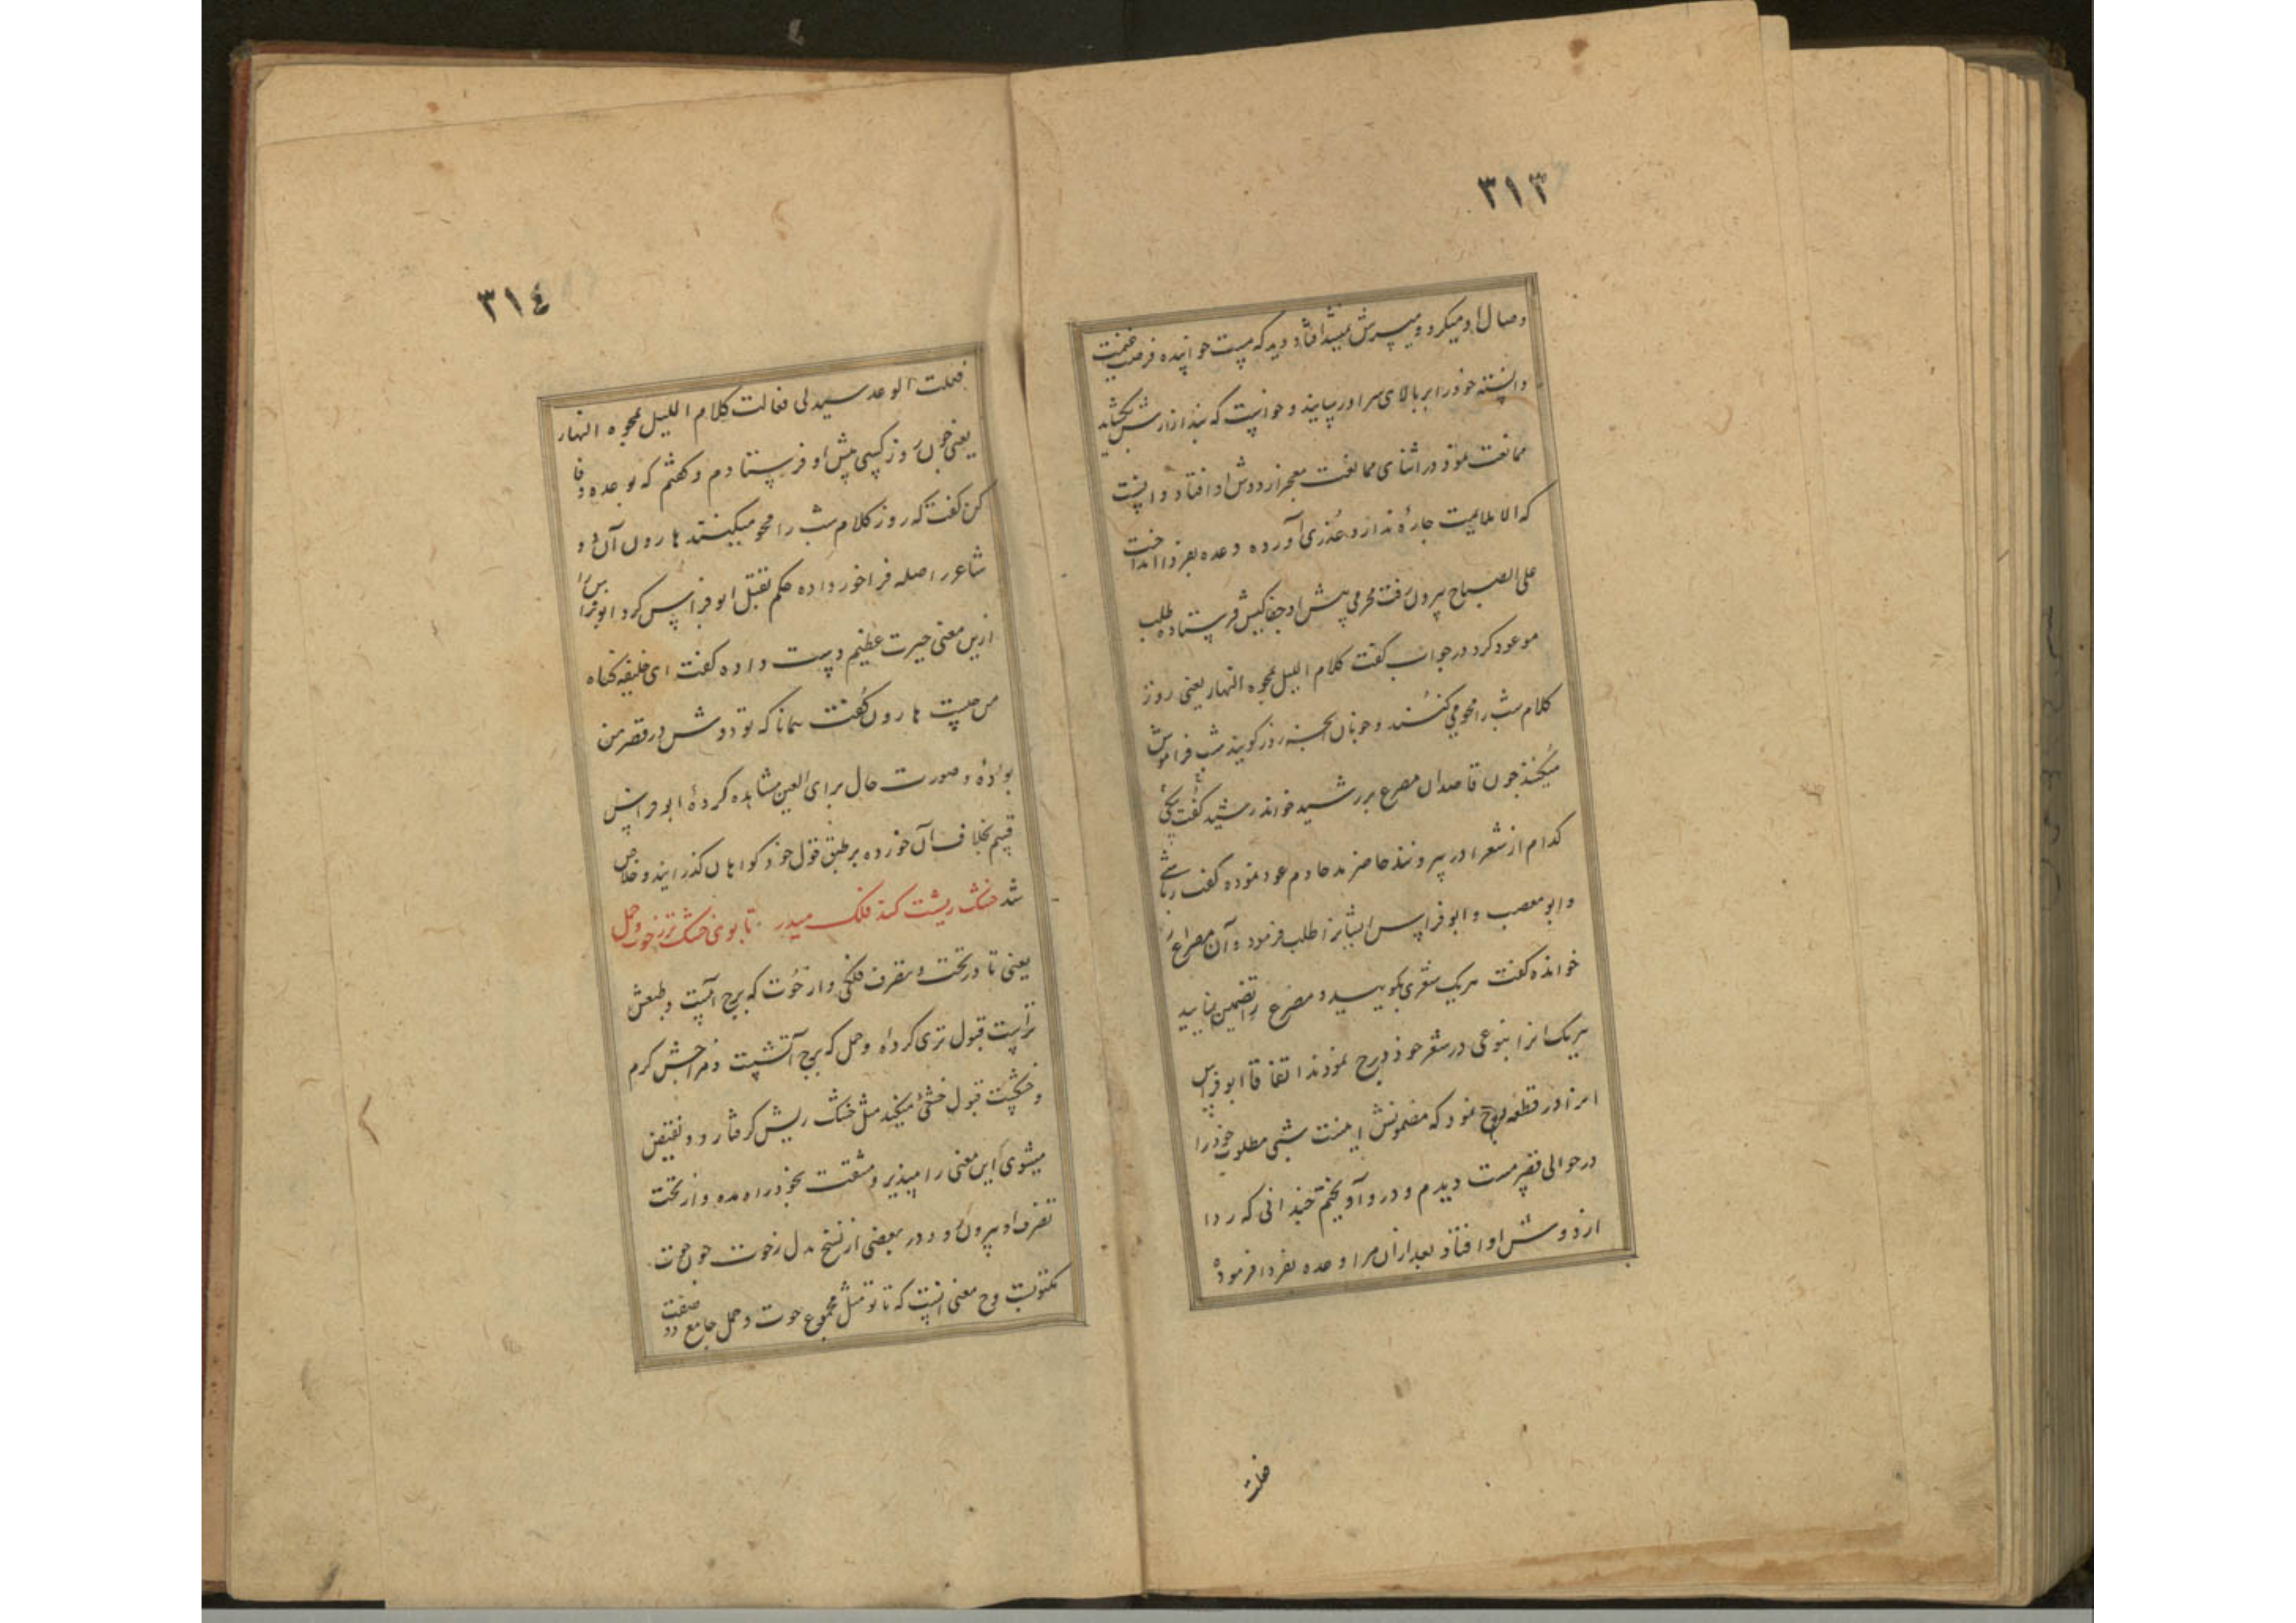 ٣١٣
وصال او میکرد و میسرش نمیشد اتفاقاً دید که مست خوابیده فرصت غنیمت
دانسته خود را بر بالای سر او رسانید و خواست که بند ازارش بگشاید
ممانعت نمود در اثنای ممانعت معجر از دوش او افتاد دانست
که الا ملایمت چارهٔ ندارد عذری آورده وعده بفردا انداخت
علی الصباح بیرون رفت محرمی پیش او جفاکیش فرستاده طلب
موعود کرد در جواب گفت کلام اللیل یمحوه النهار یعنی روز
کلام شب را محو می کنند و خوبان آنچه روز گویند شب فراموش
میکنند چون قاصد آن مصرع بر رشید خواند رشید گفت
کدام از شعرا در بیرونند حاضرند خادم عود نموده گفت رقاشی
و ابو مصعب و ابو فراس ایشانرا طلب فرمود و آن مصراع
خوانده گفت هریک شعری بگویید و مصرع را تضمین نمایید
هریک انرا بنوعی در شعر خود درج نمودند اتفاقا ابو فراس
انرا در قطعه درج نمود که مضمونش اینست شبی مطلوب خود را
در حوالی قصر مست دیدم و درو آویختم چندانی که ردا
از دوشش او افتاد بعد ازان مرا وعده بفردا فرموده
فقلت
٣١٤
فقلت الوعد سیدتی فقالت کلام اللیل یمحوه النهار
یعنی چون روز کسی پیش او فرستادم و گفتم که بوعده وفا
کن گفت که روز کلام شب را محو میکنند هارون آن دو
شاعر را صله فراخور داده حکم بقتل ابو فراس کرد ابو فراس را
ازین معنی حیرت عظیم دست داده گفت ای خلیفه گناه
من چیست هارون گفت همانا که تو دوش در قصر من
بودهٔ و صورت حال برای العین مشاهده کردهٔ ابو فراس
قسم بخلاف آن خورده بر طبق قول خود گواهان گذرانید و خلاص
شد خشک ریشت کند فلک میدر تا بوی خشک و تر ز حوت و حمل
یعنی تا در تحت و تصرف فلکی و از حوت که برج آبیست و طبعش
تراست قبول تری کردهٔ و حمل که برج آتشیست و مزاجش گرم
و خشکست قبول خشکی میکند مثل خشک ریش گرفتار دو نقیض
میشوی این معنی را مپذیر و مشقت بخود راه مده و از تحت
تصرف او بیرون رو و در بعضی از نسخ بدل ز حوت چو حوت
مکتوبست وح معنی اینست که تا تو مثل مجموع حوت و حمل جامع دو صفت